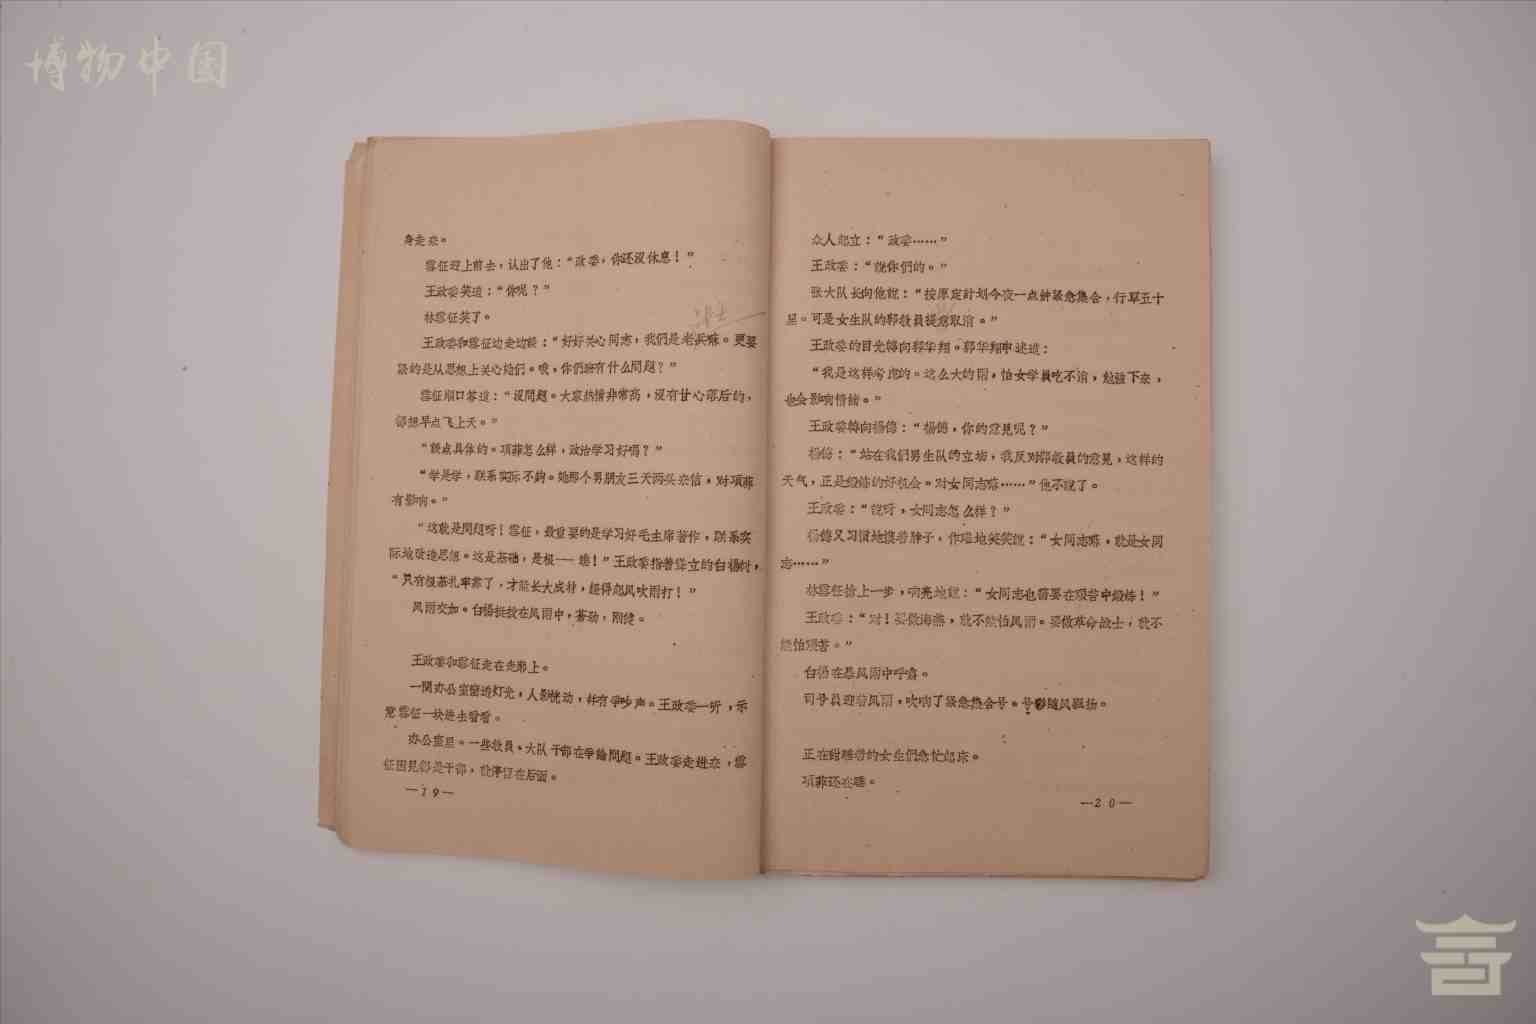 博物中国
身走来。
雪征迎上前去，认出了他：“政委，你还没休息！”
王政委笑道：“你呢？”
林雪征笑了。
王政委和雪征边走边谈：“好好关心同志，我們是老兵嘛。更要
紧的是从思想上关心她們。哦，你們班有什么問題？”
雪征順口答道：“没問題。大家热情非常高，没有甘心落后的，
都想早点飞上天。”
“談点具体的。項菲怎么样，政治学习好嗎？”
“学是学，联系实际不夠。她那个男朋友三天两头来信，对項菲
有影响。”
“这就是問題呀！雪征，最重要的是学习好毛主席著作，联系实
际地改造思想。这是基础，是根——瞧！”王政委指着挺立的白楊树，
“只有根基扎牢靠了，才能长大成材，經得起风吹雨打！”
风雨交加。白楊挺拔在风雨中，蒼劲，刚健。
王政委和雪征走在走廊上。
一間办公室窗边灯光，人影恍动，并有爭吵声。王政委一听，示
意雪征一块进去看看。
办公室里。一些教員、大队干部在爭論問題。王政委走进来，雪
征因見都是干部，就停留在后面。
—19—
众人起立：“政委……”
王政委：“說你們的。”
张大队长向他說：“按原定計划今夜一点钟紧急集合，行軍五十
里。可是女生队的郭教員提意取消。”
王政委的目光轉向郭华翔。郭华翔申述道：
“我是这样考虑的。这么大的雨，怕女学員吃不消，勉强下来，
也会影响情緒。”
王政委轉向楊倍：“楊倍，你的意見呢？”
楊倍：“站在我們男生队的立場，我反对郭教員的意見，这样的
天气，正是鍛炼的好机会。对女同志嘛……”他不說了。
王政委：“說呀，女同志怎么样？”
楊倍又习慣地摸着脖子，作难地笑笑說：“女同志嘛，就是女同
志……”
林雪征搶上一步，响亮地說：“女同志也需要在艰苦中鍛炼！”
王政委：“对！要做海燕，就不能怕风雨。要做革命战士，就不
能怕艰苦。”
白楊在暴风雨中呼嘯。
司号員迎着风雨，吹响了紧急集合号。号声随风飘揚。
正在甜睡着的女生們急忙起床。
項菲还在睡。
—20—